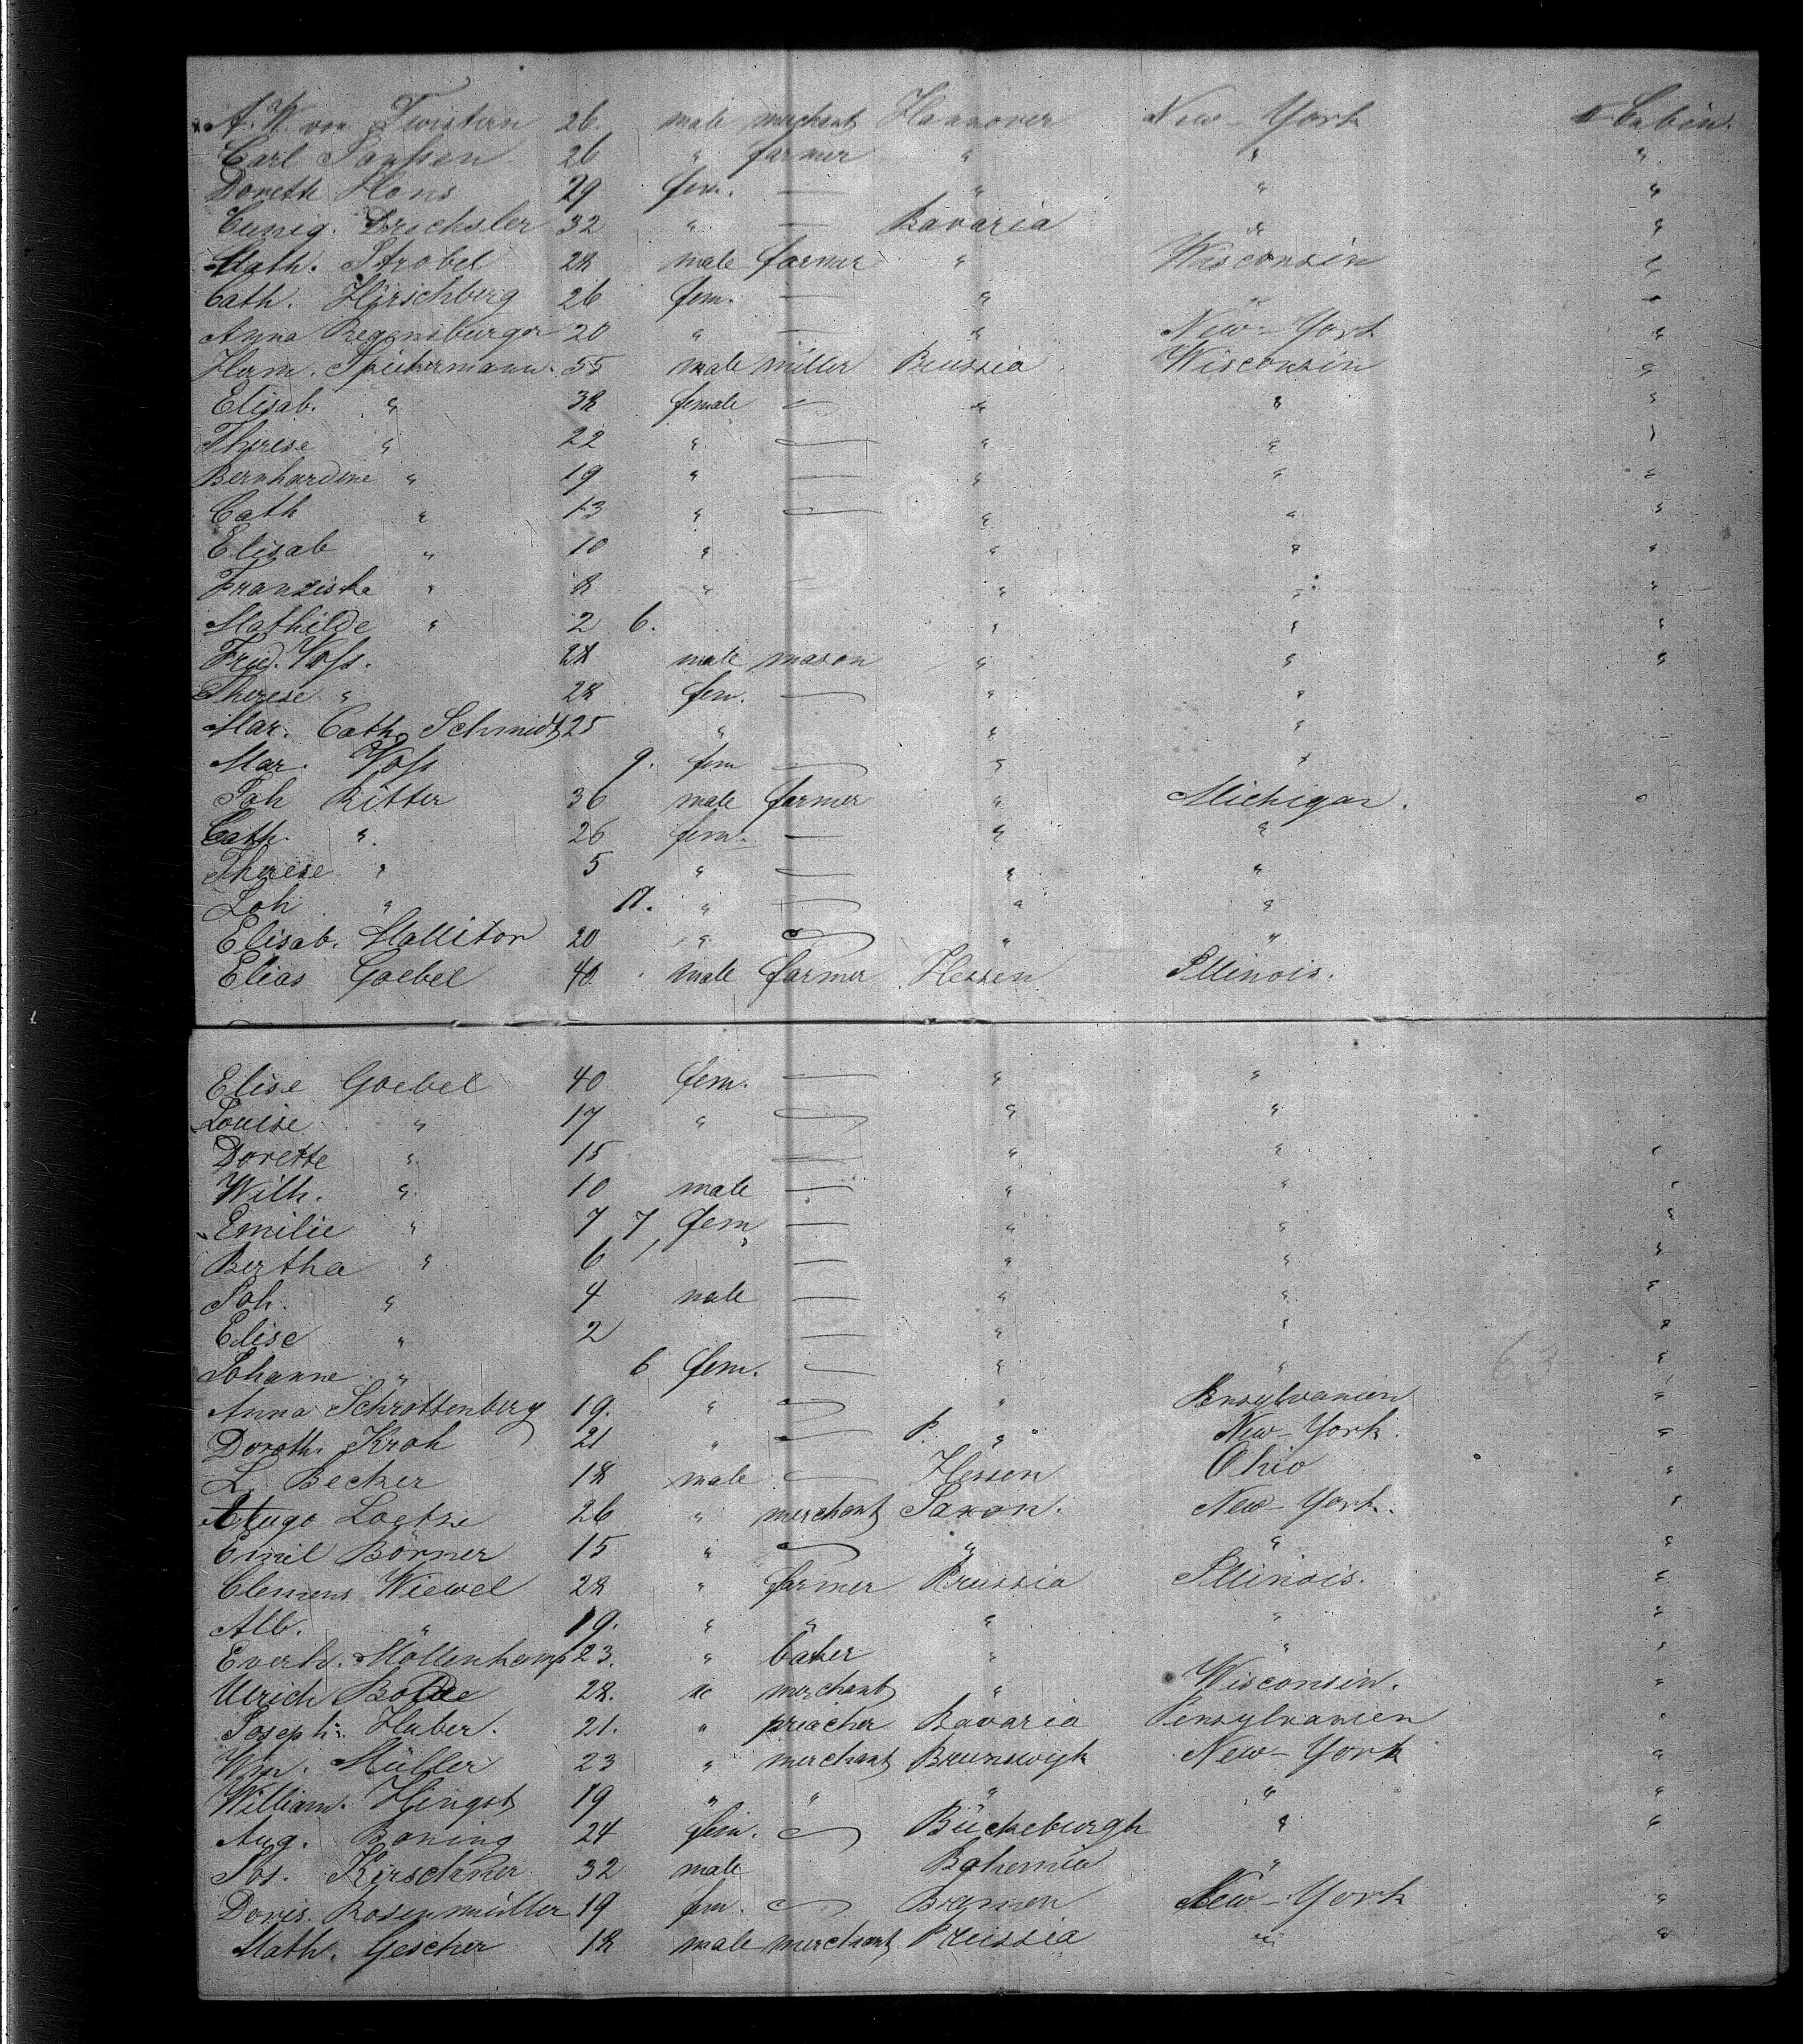 A. W. von Twistern 26. male merchant Hannover New-York Cabin.
Carl Janssen 26 " farmer " " "
Dorette Hons 29 fem. — " " "
Cunig. Drechsler 32 " — Bavaria " "
Math. Strobel 28 male farmer " Wisconsin "
Cath. Hirschberg 26 fem. — " " "
Anna Regensburger 20 " — " New-York "
Herm. Spickermann. 55 male miller Prussia Wisconsin "
Elisab. " 38 female — " " "
Therese " 22 " — " " "
Bernhardine " 19 " — " " "
Cath " 13 " — " " "
Elisab " 10 " " " "
Franziska " 8 " — " " "
Mathilde " 2 6. " " "
Fried. Voss. 28 male mason " " "
Therese " 28 fem. — " "
Mar. Cath. Schmidt 25 " " "
Mar. Voss 9. fem — " "
Joh Ritter 36 male farmer " Michigan. "
Cath. " 26 fem. — " "
Therese " 5 " — " "
Joh " 11. " — " "
Elisab. Malliton 20 " — " "
Elias Goebel 40 male farmer Hessen Illinois.
Elise Goebel 40 fem. — " "
Louise " 17 " — " "
Dorette " 15 — " " "
Wilh. " 10 male — " " "
Emilie " 7 7 fem — " " "
Bertha " 6 1 " — " " "
Joh. " 4 male — " " "
Elise " 2 — " " "
63
Johanne " 6 fem. — " " "
Anna Schrottenberg 19. " — " Pensylvanien "
Doroth. Kroh 21 " — P. " New-York. "
L. Becker 18 male — Hessen Ohio "
Hugo Loetze 26 " merchant Saxon. New-York. "
Emil Börner 15 " — " " "
Clemens Wiewel 28 " farmer Prussia Illinois. "
Alb. " 19. " " " " "
Everh. Möllenkamp 23. " baker " " "
Ulrich Bolde 28. " merchant " Wisconsin. "
Joseph Huber. 21. " preacher Bavaria Pensylvanien "
Wm. Müller 23 " merchant Brunswigk New-York "
William. Hingst 19 " " " " "
Aug. Boning 24 fem. — Bückeburgh " "
Jos. Kirschner 32 male Bohemia "
Doris. Rosenmüller 19 fem. — Bremen New-York "
Math. Gescher 18 male merchant Prussia " "